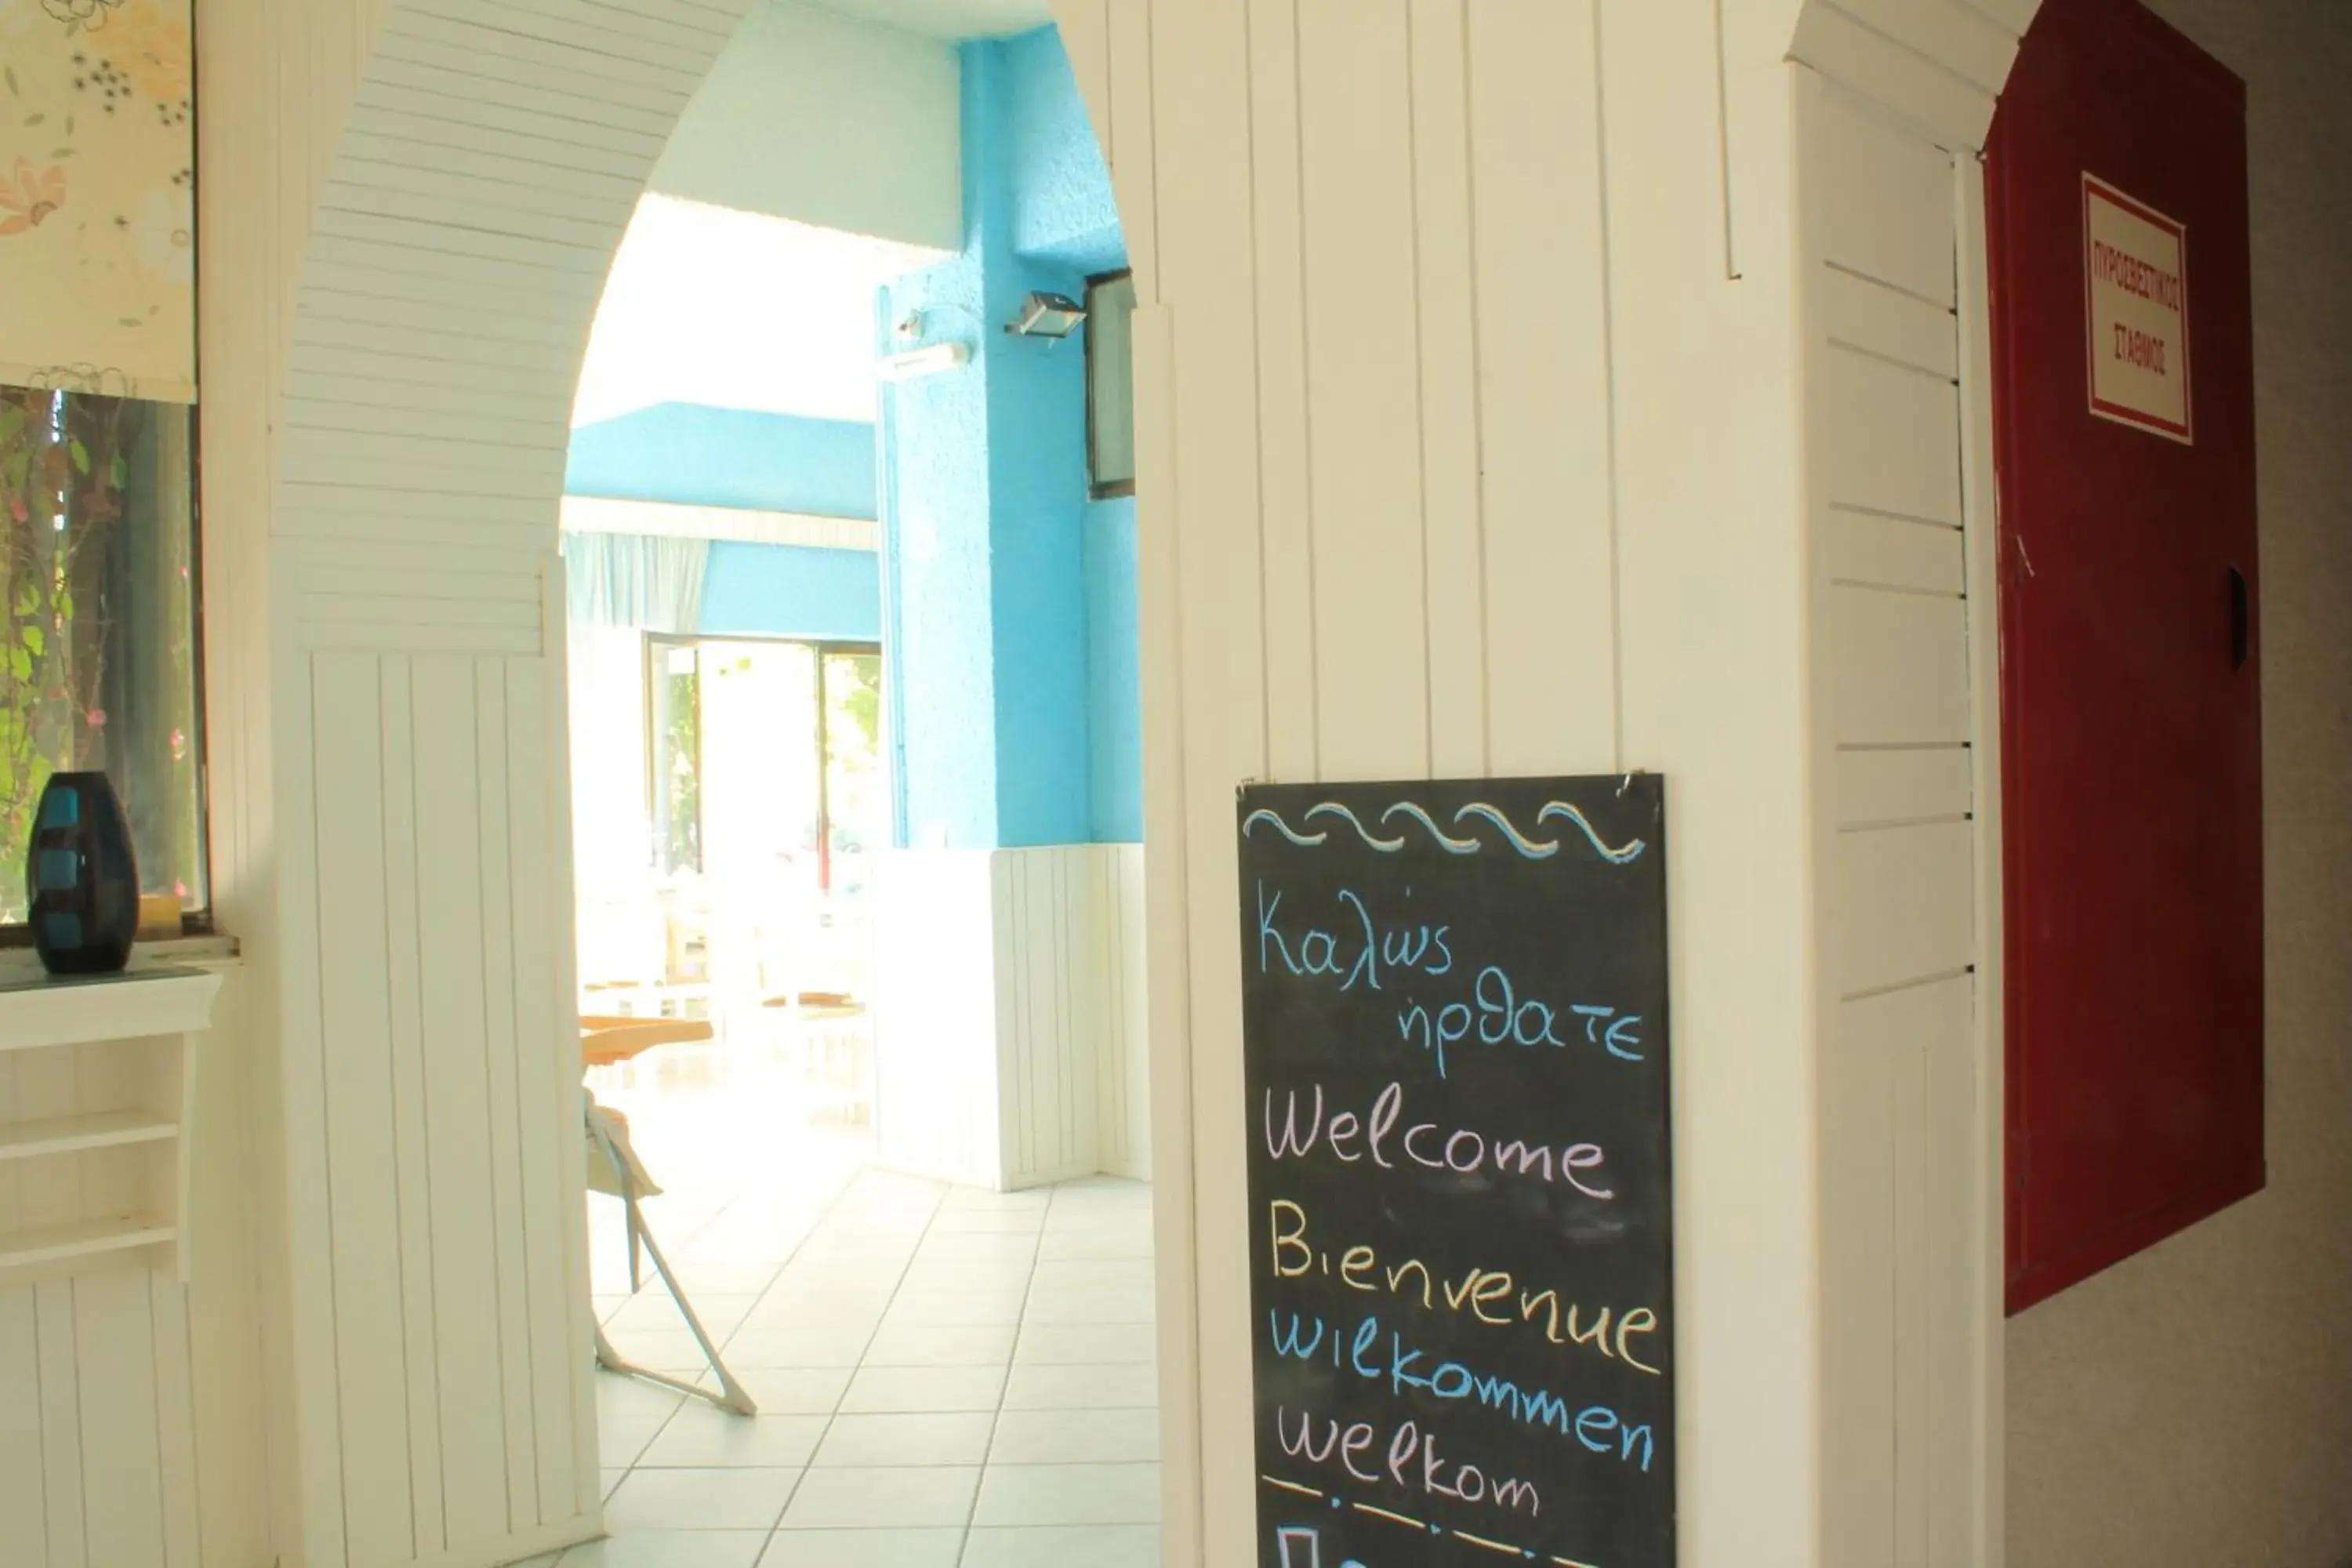 Καλώς
ήρθατε
Welcome
Bienvenue
wilkommen
welkom
ΠΥΡΟΣΒΕΣΤΙΚΟΣ
ΣΤΑΘΜΟΣ